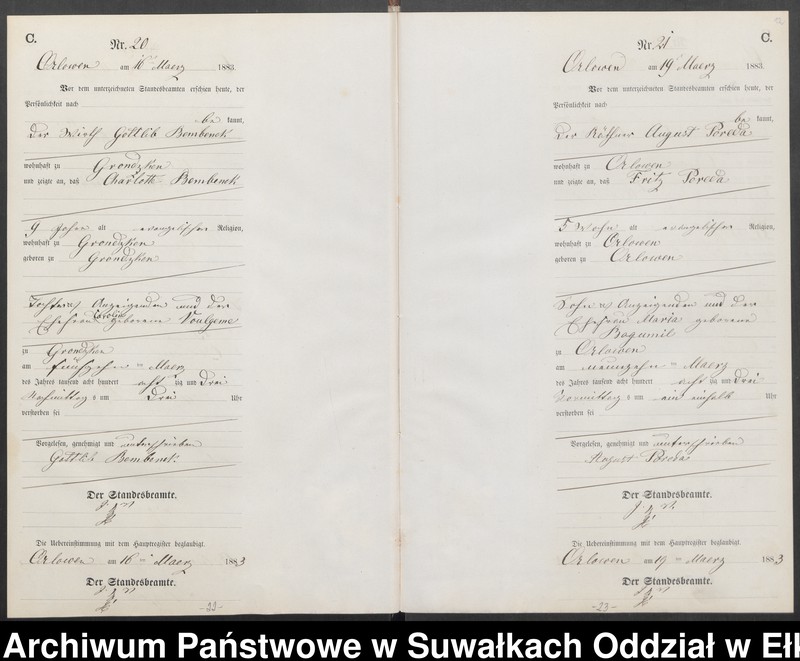 C.
Nr. 20
Orlowen am 16 Maerz 1883.
Vor dem unterzeichneten Standesbeamten erschien heute, der
Persönlichkeit nach
be kannt,
der Wirth Gottlieb Bembenek
wohnhaft zu Grondzken
und zeigte an, daß Charlotte Bembenek
9 Jahre alt evangelischer Religion,
wohnhaft zu Grondzken
geboren zu Grondzken
Tochter des Anzeigenden und der
Ehefrau geborene
zu Grondzken
am fünfzehn ten Maerz
des Jahres tausend acht hundert acht zig und drei
Nachmittag s um drei Uhr
verstorben sei
Vorgelesen, genehmigt und unterschrieben
Gottlieb Bembenek
Der Standesbeamte.
Die Uebereinstimmung mit dem Hauptregister beglaubigt.
Orlowen am 16 ten Maerz 1883
Der Standesbeamte.
-22-
C.
Nr. 21
Orlowen am 19 Maerz 1883.
Vor dem unterzeichneten Standesbeamten erschien heute, der
Persönlichkeit nach
be kannt,
der Käthner August Poreda
wohnhaft zu Orlowen
und zeigte an, daß Fritz Poreda
5 Woche alt evangelischer Religion,
wohnhaft zu Orlowen
geboren zu Orlowen
Sohn des Anzeigenden und der
Ehefrau Maria geborene
Bogumil
zu Orlowen
am neunzehn ten Maerz
des Jahres tausend acht hundert acht zig und drei
Vormittag s um ein einhalb Uhr
verstorben sei
Vorgelesen, genehmigt und unterschrieben
August Poreda
Der Standesbeamte.
Die Uebereinstimmung mit dem Hauptregister beglaubigt.
Orlowen am 19 ten Maerz 1883
Der Standesbeamte.
-23-
Archiwum Państwowe w Suwałkach Oddział w Ełk